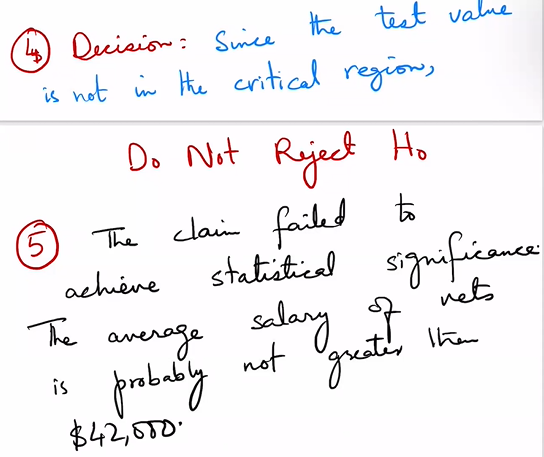 4 Decision: Since the test value
is not in the critical region,
Do Not Reject Ho
5 The claim failed to
achieve statistical significance.
The average salary of vets
is probably not greater then
$42,000.